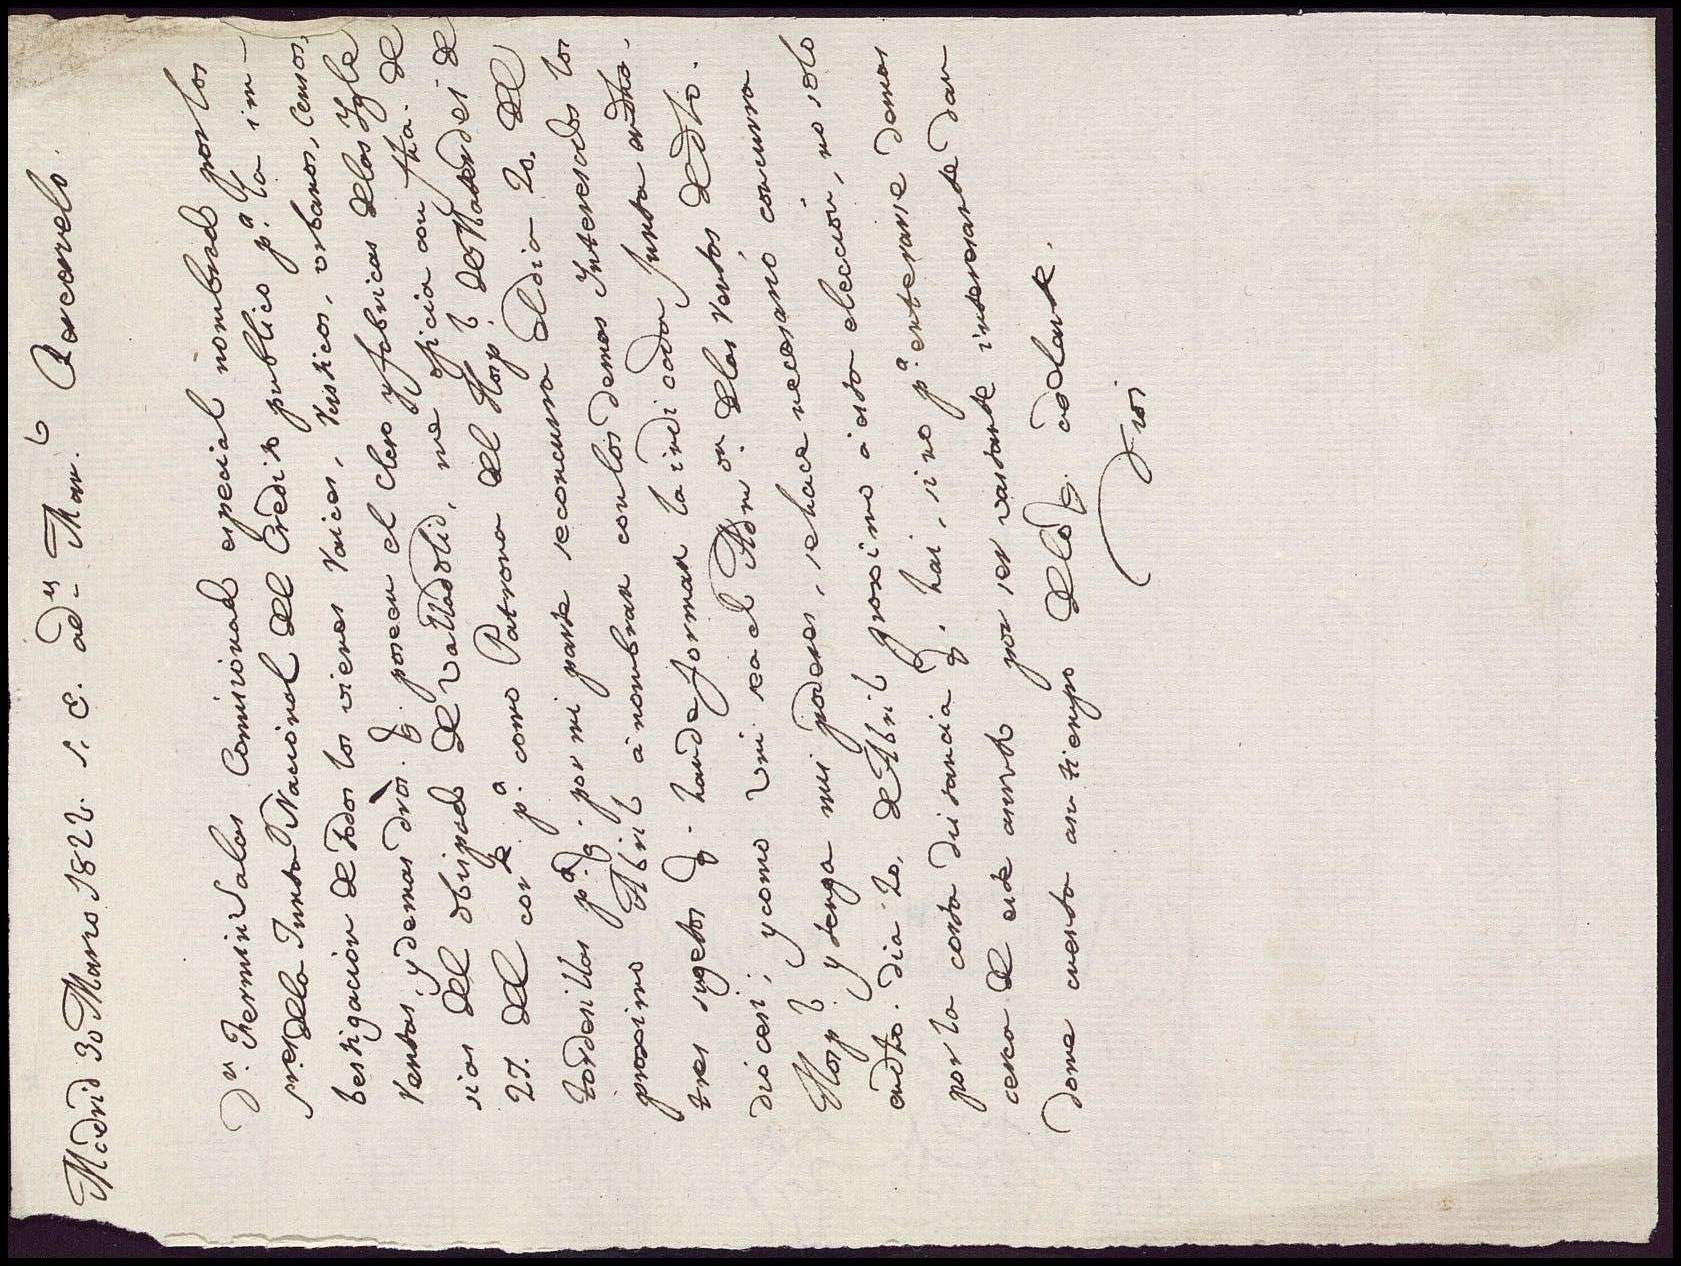 Madrid 30 Marzo 1822. S. C. a Dn. Man.l Ascarvelo.
Dn. Fermin Salas Comisionado especial nombrado por los
sres de la Junta Nacional del Credito publico p.a la im-
bestigacion de todos los vienes raices, rusticos, urbanos, censos,
rentas, y demas dros. q. poseen el Clero y fabricas de las Ygle
sias del obispado de Valladolid, me oficia con fha. de
27. del cor.te p.a como Patrona del Hosp.l de Mater Dei de
tordesillas p.a q. por mi parte se concurra el dia 20. del
proximo Abril à nombrar con los demas Interesados los
tres sugetos q. han de formar la indicada Junta en dho.
Dio cesi; y como Vm. sea el Adm.or de las rentas de dho.
Hosp.l y tenga mis poderes, se hace necesario concurra
en dho. dia 20, de Abril proximo à esta eleccion, no solo
por la corta distancia q. hai, sino p.a enterarse demas
cerca de este asunto por ser vastante interesante dan
dome cuenta en tiempo de lo q. adelante.
Dios